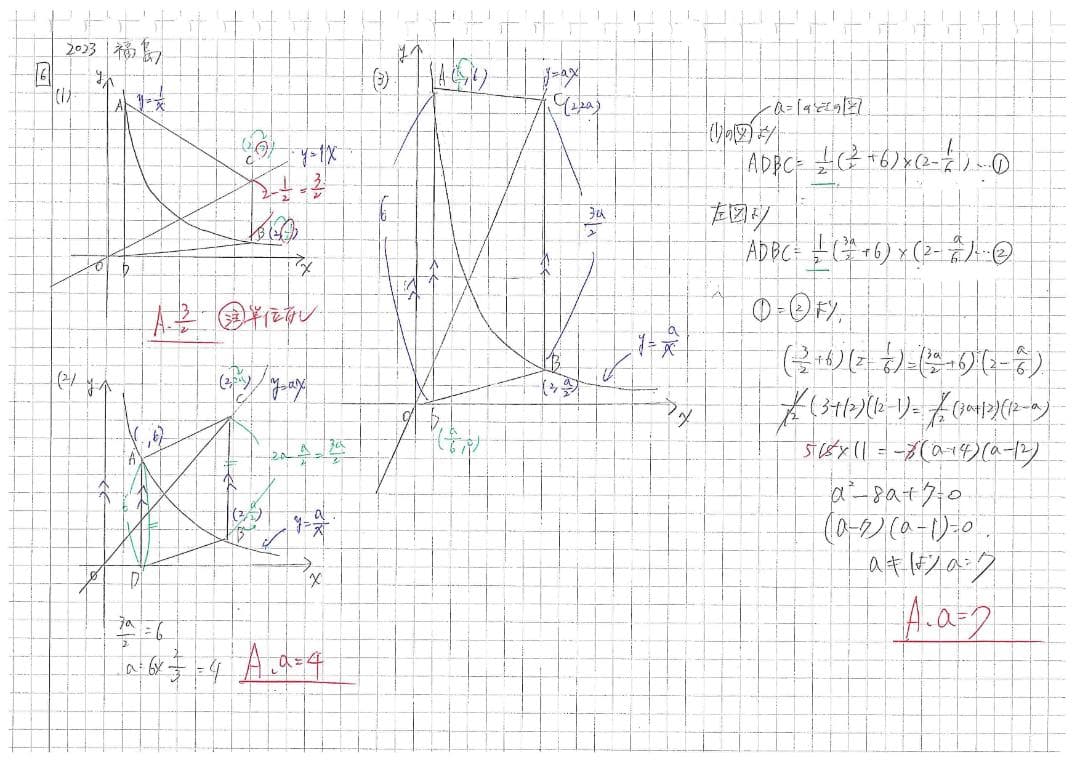 2023 福島
6
(1)
y
A
y=1/x
(2, 2)
C
y=1x
2-1/2=3/2
B(2, 1/2)
O
D
x
A. 3/2 注 単位なし
(2)
y
(2, 2a)
C
y=ax
( , 6)
A
2a-a/2=3a/2
6
(2, a/2)
B
y=a/x
O
D
x
3a/2=6
a=6×2/3=4
A. a=4
(3)
y
A(a/6, 6)
y=ax
C(2,2a)
6
3a/2
y=a/x
B
(2, a/2)
O
D
x
(a/6, 0)
a=1のときの図
(1)の図より
ADBC=1/2(3/2+6)×(2-1/6)…①
左図より
ADBC=1/2(3a/2+6)×(2-a/6)…②
①=②より,
(3/2+6)(2-1/6)=(3a/2+6)(2-a/6)
1/12(3+12)(12-1)=1/12(3a+12)(12-a)
5 15×11=-3(a+4)(a-12)
a²-8a+7=0
(a-7)(a-1)=0
a≠1より a=7
A. a=7